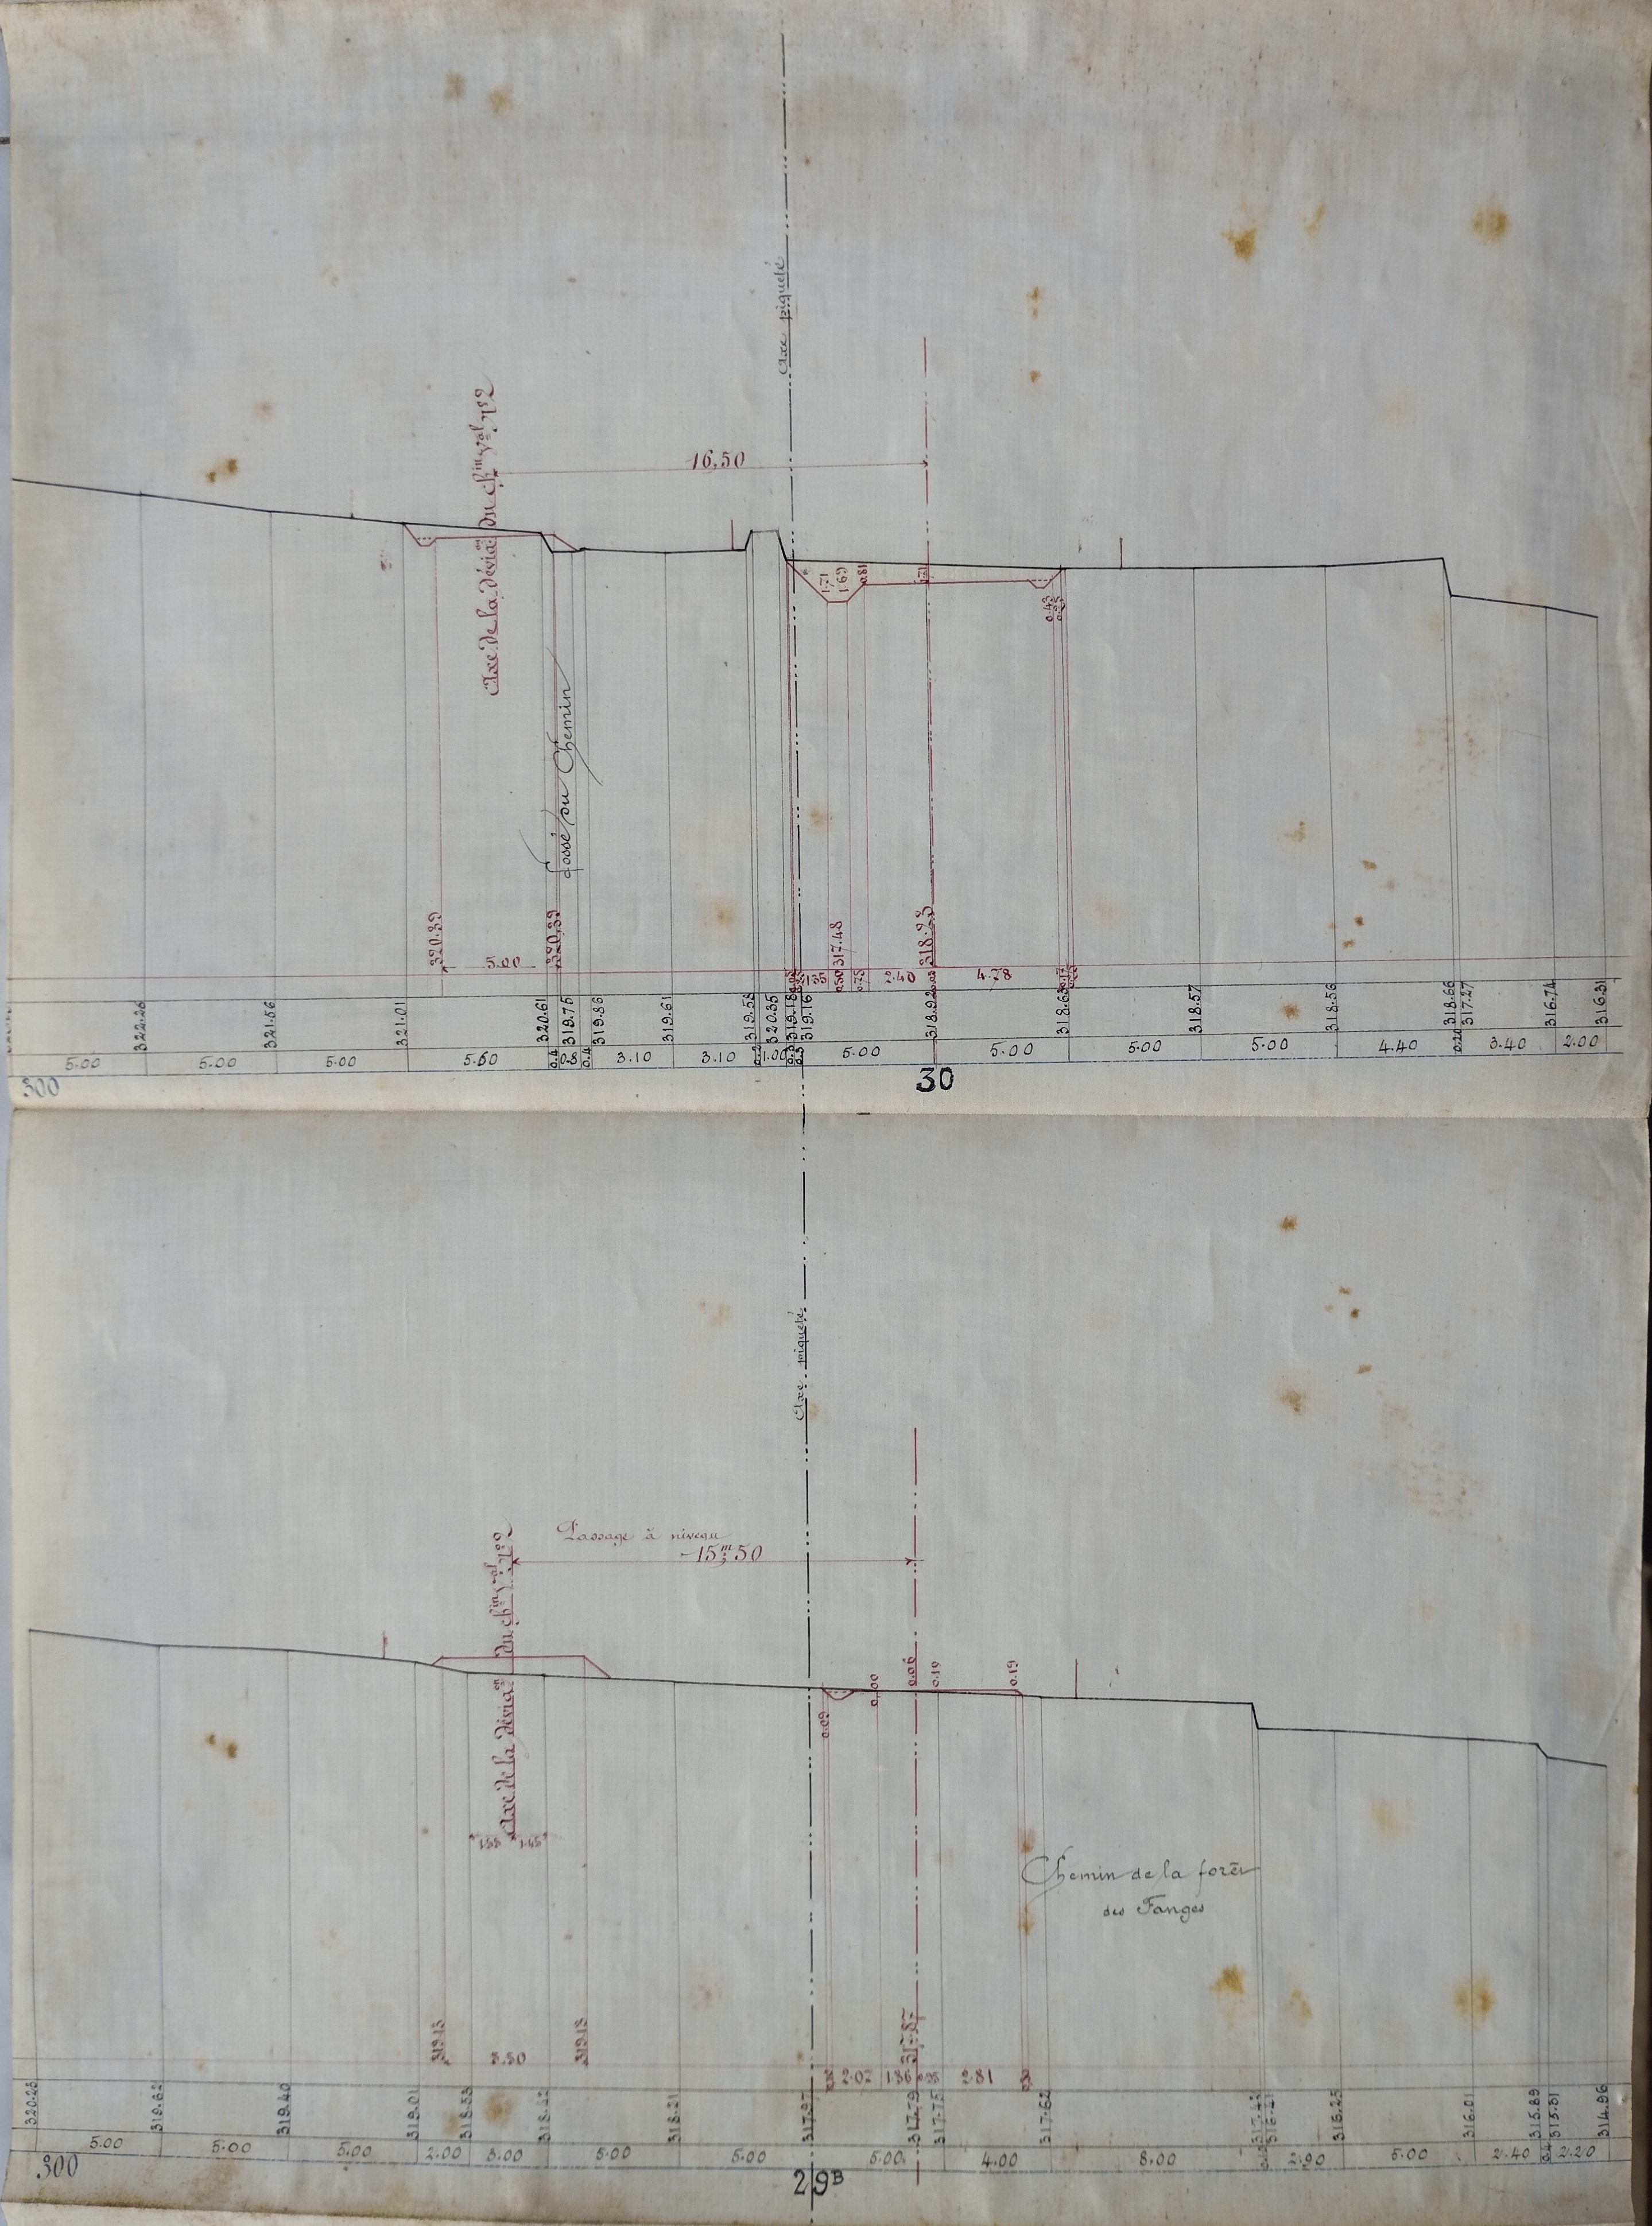 Axe piqueté
Axe de la dévia.on du ch.in v.al n°2
16.50
1.71
1.69
0.81
0.43
fossé du Chemin
320.39
5.00
320.39
317.48
0.50
0.75
2.40
318.23
4.78
322.26
321.56
321.01
320.61
319.75
319.86
319.61
319.53
320.35
319.18
319.16
318.92
318.63
318.57
318.56
318.66
317.27
316.74
316.31
5.00
5.00
5.00
5.60
0.4
0.8
0.4
3.10
3.10
1.00
5.00
5.00
5.00
5.00
4.40
0.20
3.40
2.00
300
30
Axe piqueté
Passage à niveau
15m50
Axe de la dévia.on du ch.in v.al n°2
0.09
0.00
0.06
0.19
0.19
Chemin de la forêt
des Fanges
319.13
5.50
319.13
2.02
1.36
317.87
2.81
320.23
319.62
319.40
319.01
318.53
318.42
318.21
317.97
317.79
317.75
317.62
317.42
316.25
316.01
315.89
315.31
314.96
5.00
5.00
5.00
2.00
3.00
5.00
5.00
5.00
4.00
8.00
2.90
5.00
2.40
2.20
300
29B